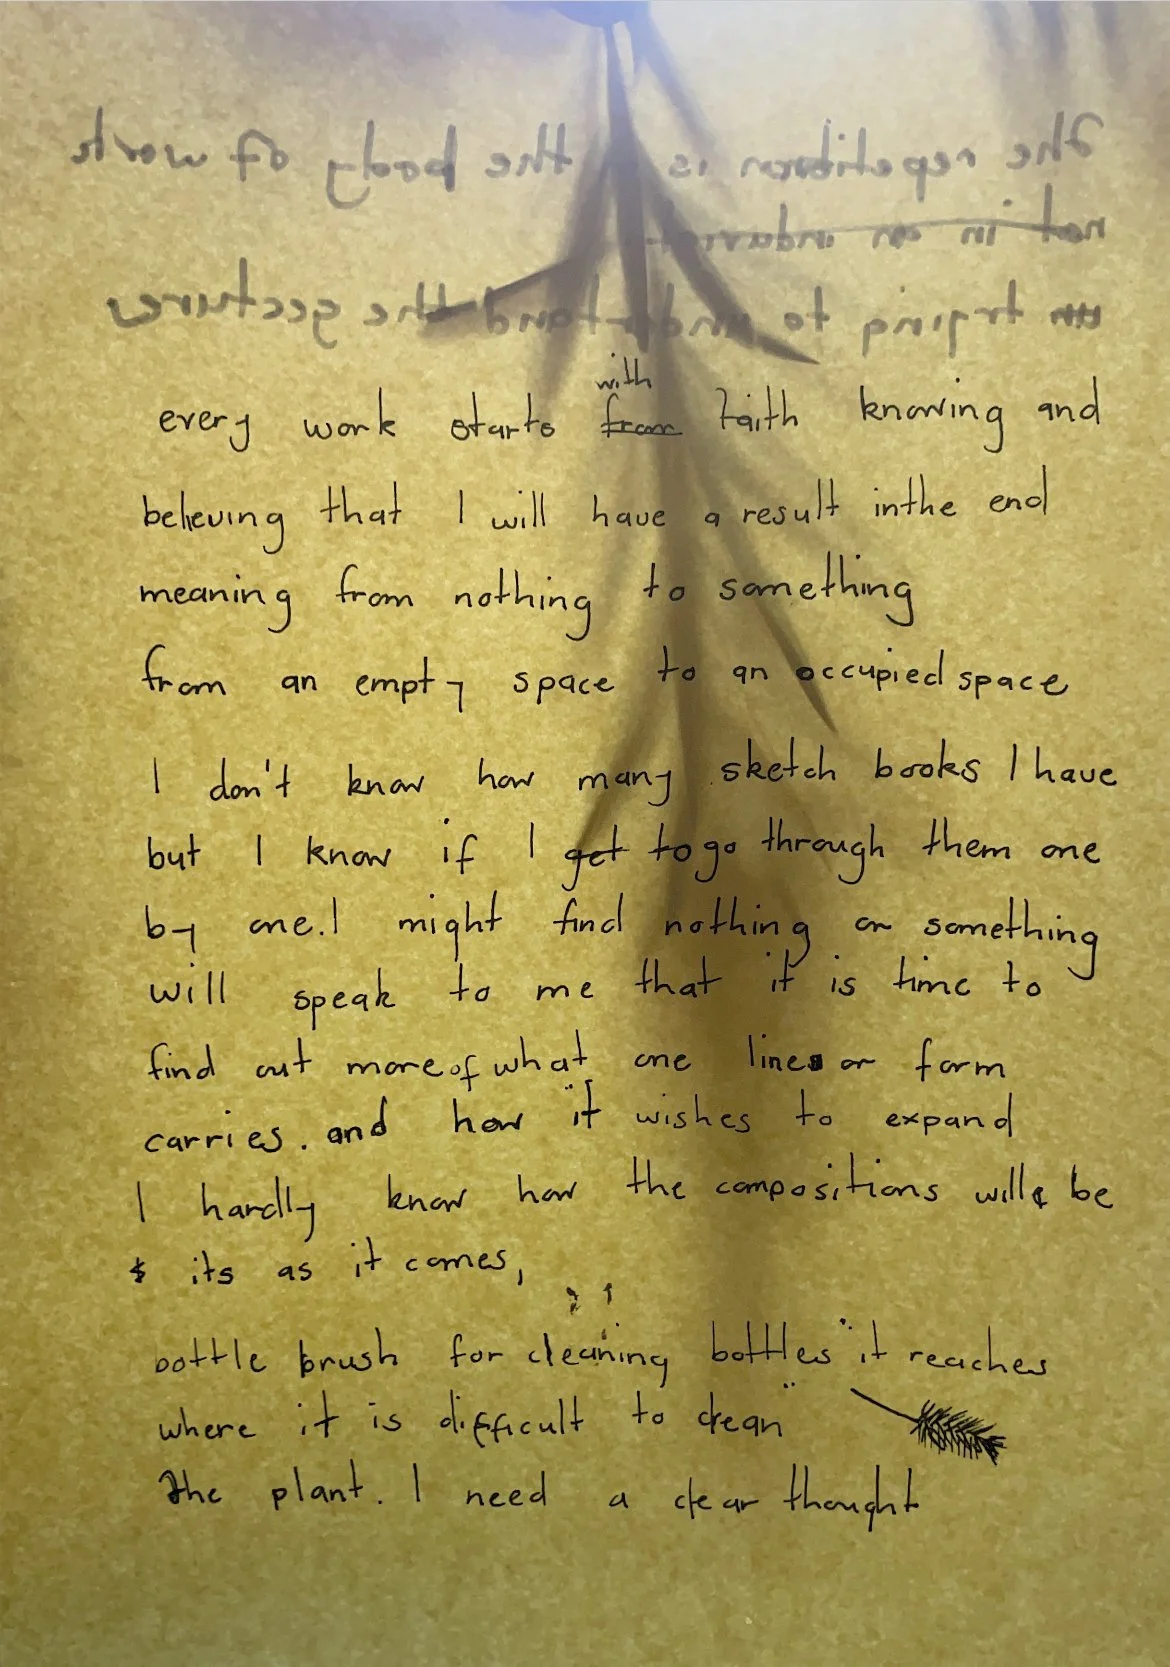 The repetition is the body of work
not in an
trying to understand the gestures
with
every work starts from faith knowing and
believing that I will have a result inthe end
meaning from nothing to something
from an empty space to an occupied space
I don't know how many sketch books I have
but I know if I get to go through them one
by one. I might find nothing or something
will speak to me that it is time to
find out more of what one lines or form
carries. and how it wishes to expand
I hardly know how the compositions will be
& its as it comes,
bottle brush for cleaning bottles "it reaches
where it is difficult to clean"
The plant. I need a clear thought